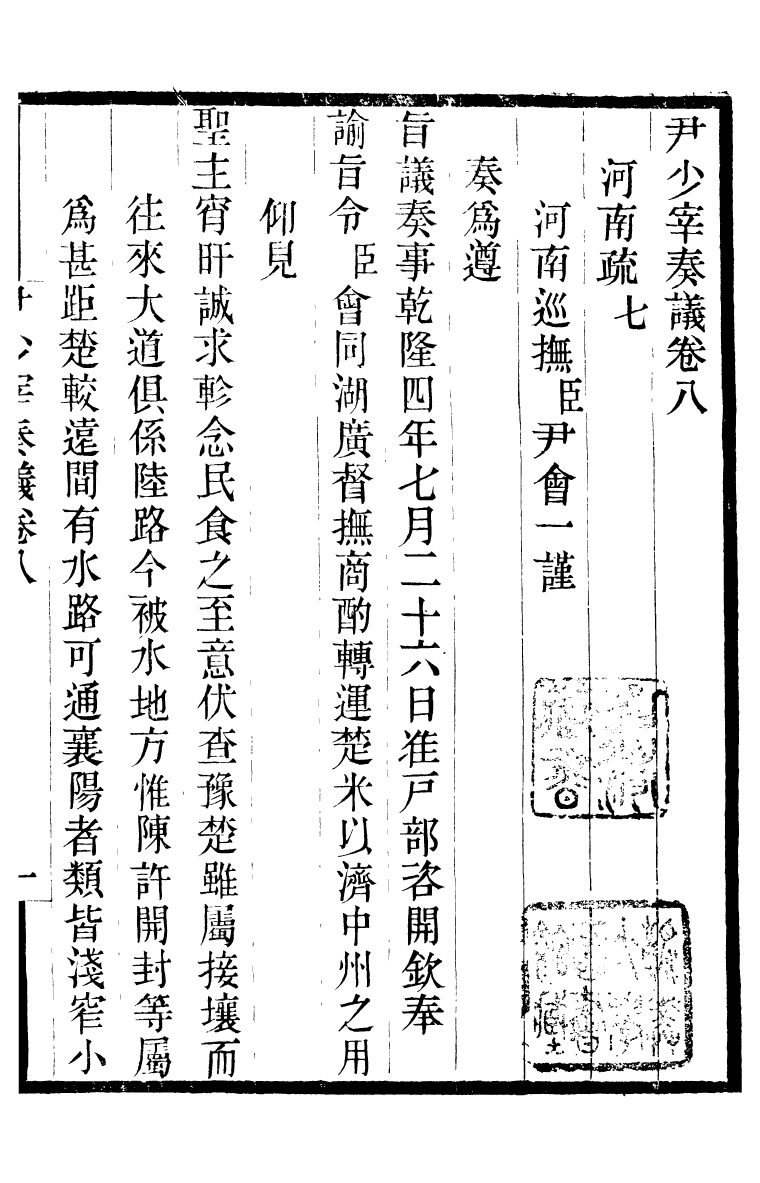 尹少宰奏議卷八
河南疏七
河南巡撫臣尹會一謹
奏爲遵
旨議奏事乾隆四年七月二十六日准戸部咨開欽奉
諭旨令臣會同湖廣督撫商酌轉運楚米以濟中州之用
仰見
聖主宵旰誠求軫念民食之至意伏查豫楚雖屬接壤而
往來大道俱係陸路今被水地方惟陳許開封等屬
爲甚距楚較遠間有水路可通襄陽者類皆淺窄小
尹少宰奏議卷八
一